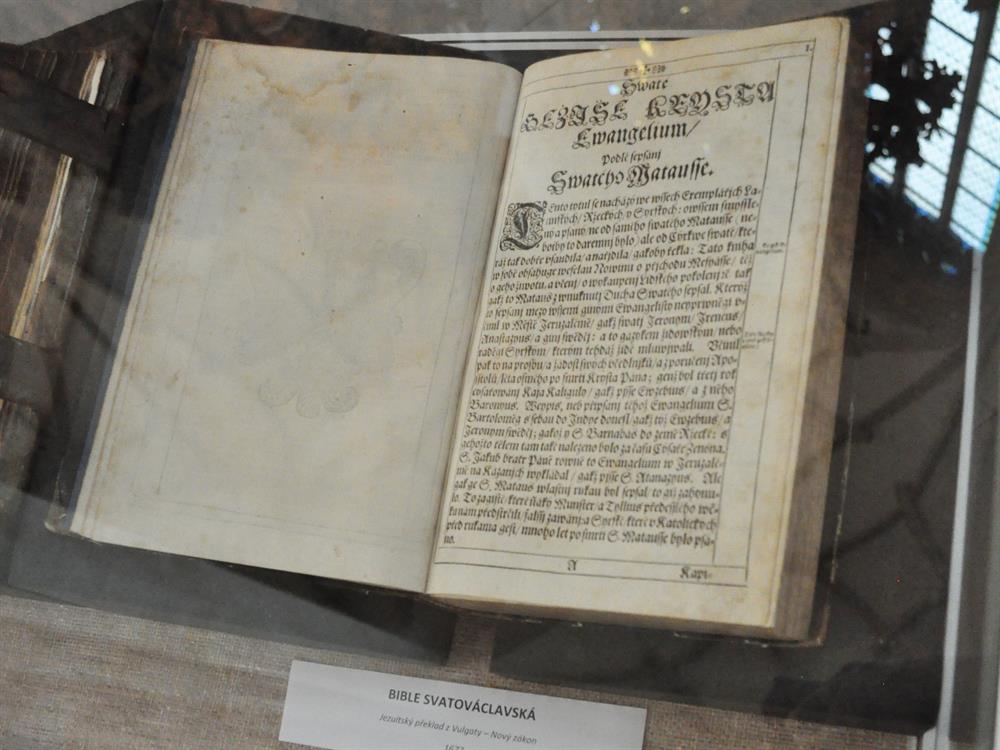 1.
Swaté
GEŽJSSE KRYSTA
Ewangelium/
Podlé sepsanj
Swatého Matausse.
Tento tytul se nacházý we wssech Exemplářjch La-
tinských/ Řeckých/ y Syrských: owssem smyssle-
ný a psaný ne od samého swatého Matausse/ ne-
boťby to daremnj bylo/ ale od Cyrkwe swaté/ kte-
ráž tak dobře vsaudila/ a natjdila/ gakoby řekla: Tato kniha
w sobě obsahuge weselau Nowinu o přjchodu Messyásse/ též
o geho životu/ a včenj/ o wykaupenj Lidského pokolenj: tě tak
gakž to Mataus z wnuknutj Ducha Swatého sepsal. Kterýž
to sepsanj mezy wssemi ginými Ewangelisty neyprwněgi v-
činil w Městě Jeruzalémě/ gakž swatj Jeronym/ Jreneus/
Anastazyus/ a ginj swědčj: a to gazykem židowským/ nebo
raděgi Syrským/ kterým tehdáž židé mluwjwali. Včinil
pak to na prosbu/ a žádost swých včedlnjků/ a z poručenj Apo-
sstolů/ léta osmého po smrti Krysta Pána; genž byl třetj rok
cysařowanj Kaja Kaliguly/ gakž pjsse Ewzebius/ a z něho
Baronyus. Weypis, neb přepsanj téhož Ewangelium S.
Bartoloměg s sebau do Jndye donesl/ gakž týž Ewzebius/ a
Jeronym swědčj; gakož y S. Barnabáš do země Řecké: s
gehožto tělem tam také nalezeno bylo za času Cysaře Zenona.
S. Jakub bratr Páně rowně to Ewangelium w Jeruzalé-
mě na Kázanjch wykládal/ gakž pjsse S. Atanazyus. Ale
gak ge S. Mataus wlastnj rukau byl sepsal/ to giž zahynu-
lo. To zagisté/ které ňáký Munster/ a Tyllius předesslého wě-
ku nám předstřeli/ falssj zawánj: a Syrské/ které v Katolických
před rukama gest/ mnoho let po smrti S. Matausse bylo psá-
no.
A Kapi-
BIBLE SVATOVÁCLAVSKÁ
Jezuitský překlad z Vulgaty – Nový zákon
1677